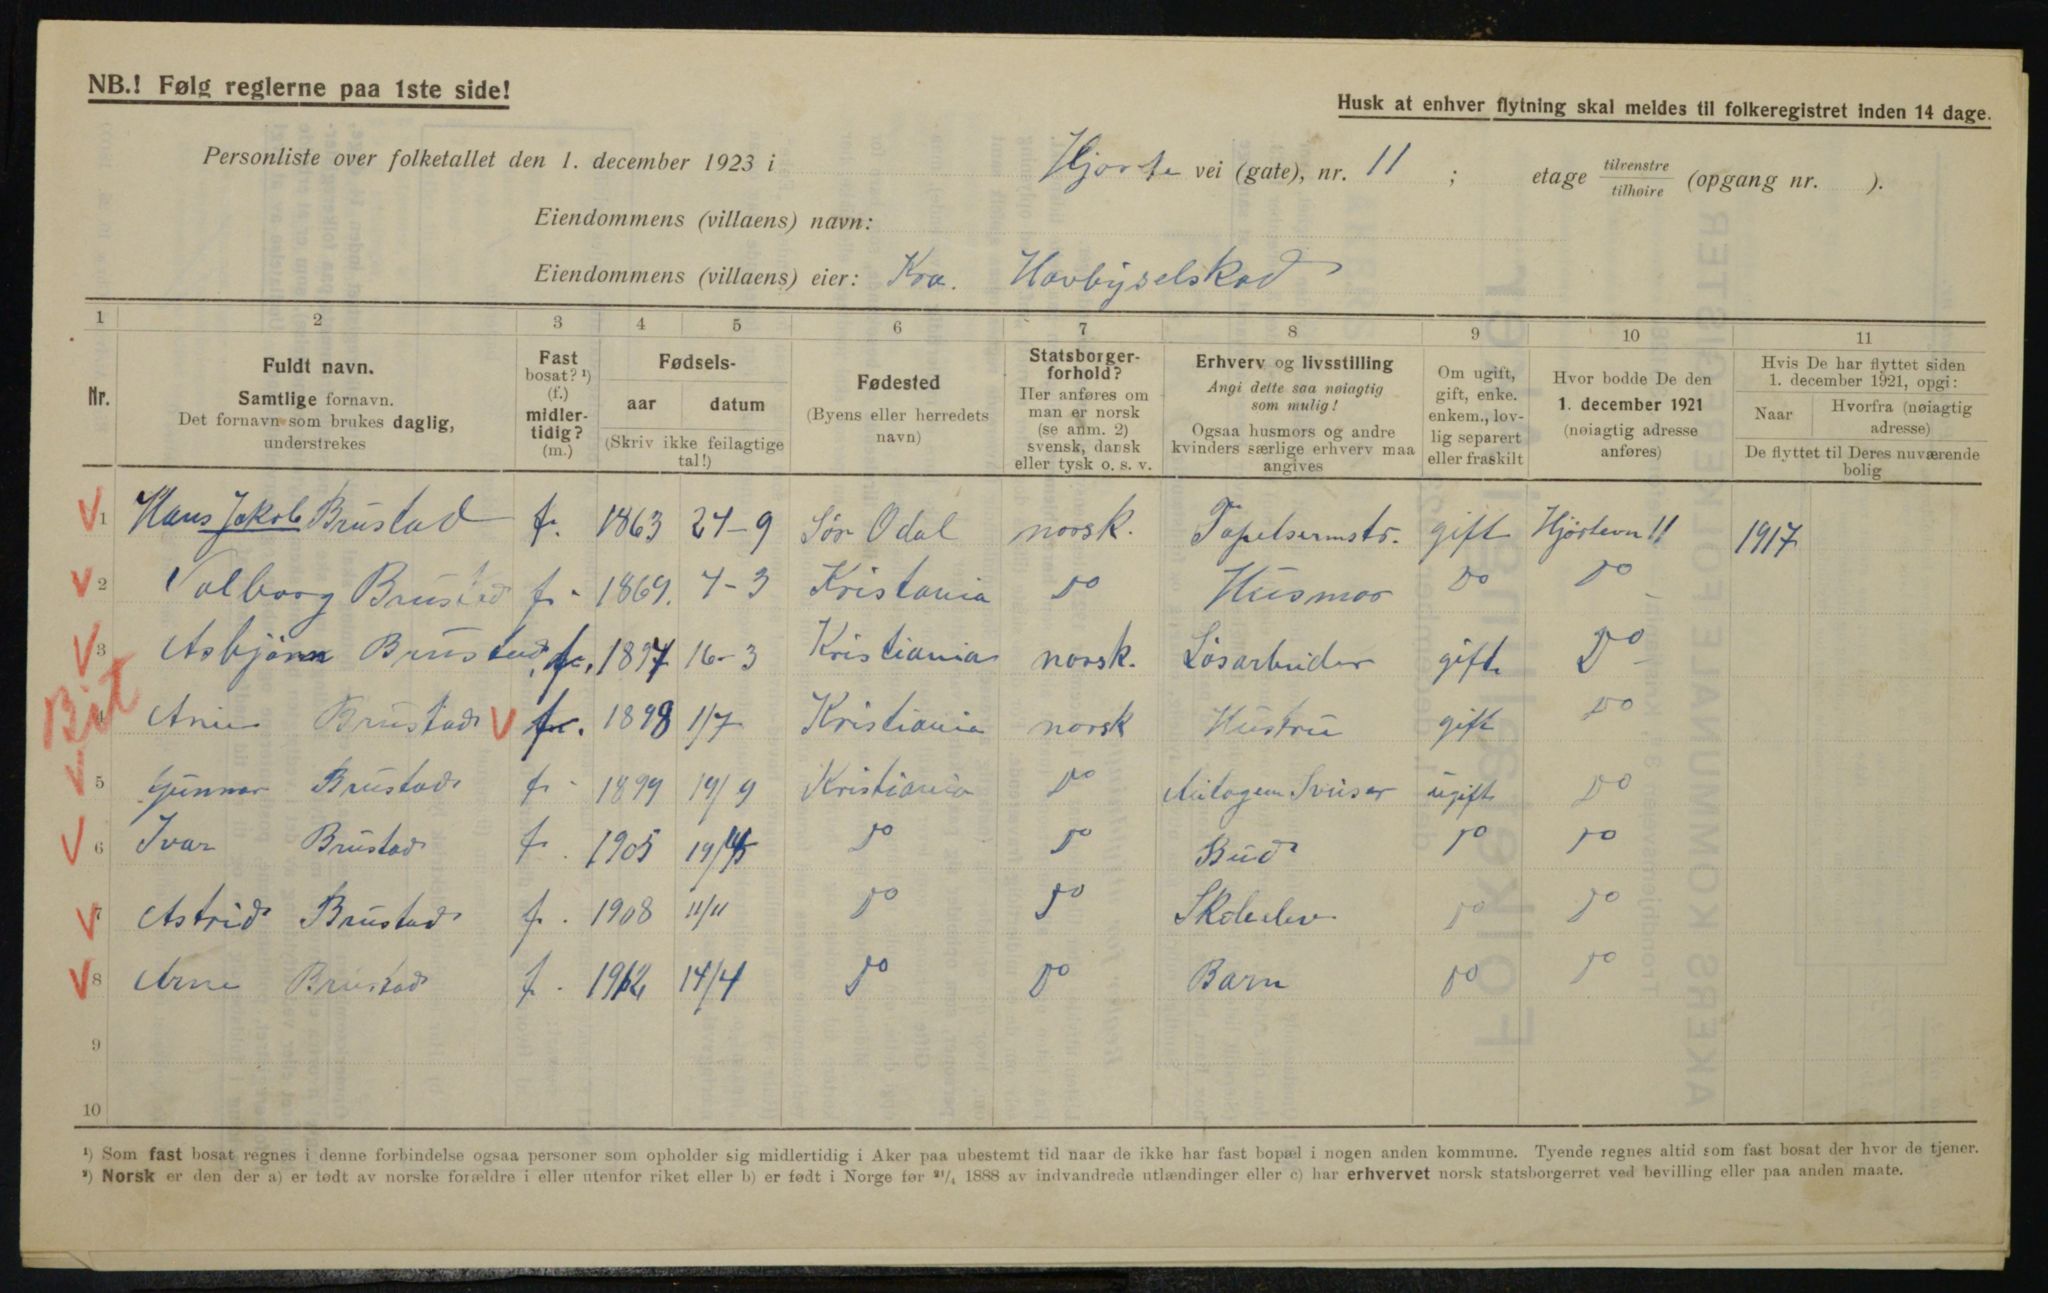 NB.! Følg reglerne paa 1ste side!
Husk at enhver flytning skal meldes til folkeregistret inden 14 dage.
Personliste over folketallet den 1. december 1923 i Hjorte vei (gate), nr. 11 ; etage tilvenstre tilhøire (opgang nr. ).
Eiendommens (villaens) navn:
Eiendommens (villaens) eier: Kra. Havbyselskad
1 2 3 4 5 6 7 8 9 10 11
Nr.
Fuldt navn.
Samtlige fornavn.
Det fornavn som brukes daglig,
understrekes
Fast
bosat? ¹)
(f.)
midler-
tidig?
(m.)
Fødsels-
aar datum
(Skriv ikke feilagtige
tal!)
Fødested
(Byens eller herredets
navn)
Statsborger-
forhold?
Her anføres om
man er norsk
(se anm. 2)
svensk, dansk
eller tysk o. s. v.
Erhverv og livsstilling
Angi dette saa nøiagtig
som mulig!
Ogsaa husmors og andre
kvinders særlige erhverv maa
angives
Om ugift,
gift, enke.
enkem., lov-
lig separert
eller fraskilt
Hvor bodde De den
1. december 1921
(nøiagtig adresse
anføres)
Hvis De har flyttet siden
1. december 1921, opgi:
Naar Hvorfra (nøiagtig
adresse)
De flyttet til Deres nuværende
bolig
1 Hans Jakob Brustad f. 1863 24-9 Sör Odal norsk. Tapetsermstr. gift Hjörtevn 11 1917
2 Valborg Brustad f. 1869. 4-3 Kristania Do Husmor Do Do
3 Asbjörn Brustad f. 1897 16-3 Kristiania norsk. Lösarbeider gift Do
Bit
4 Brustad f. 1898 1/7 Kristiania norsk Hustru gift Do
5 Gunnar Brustad f. 1899 19/9 Kristiania Do ugift Do
6 Ivar Brustad f. 1905 Do Do Bud Do Do
7 Astrid Brustad f. 1908 11/11 Do Do Skoleelev Do Do
8 Arne Brustad f. 1912 14/4 Do Do Barn Do Do
9
10
¹) Som fast bosat regnes i denne forbindelse ogsaa personer som opholder sig midlertidig i Aker paa ubestemt tid naar de ikke har fast bopæl i nogen anden kommune. Tyende regnes altid som fast bosat der hvor de tjener.
²) Norsk er den der a) er født av norske forældre i eller utenfor riket eller b) er født i Norge før 21/4 1888 av indvandrede utlændinger eller c) har erhvervet norsk statsborgerret ved bevilling eller paa anden maate.